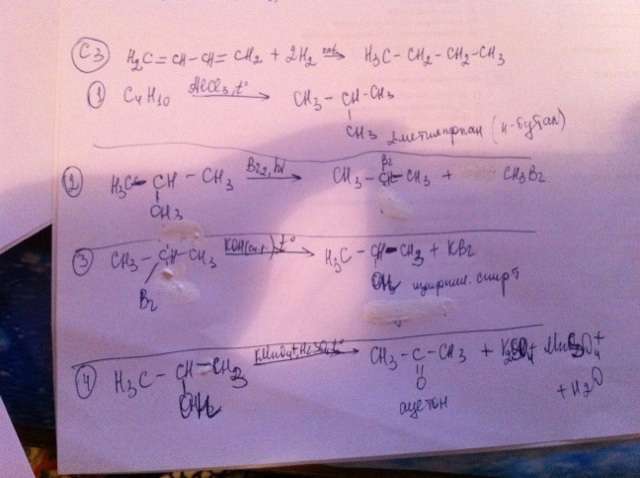 C3 H₂C=CH-CH=CH₂ + 2H₂ → H₃C-CH₂-CH₂-CH₃
1 C₄H₁₀ AlCl₃, t° → CH₃-CH-CH₃
CH₃ 2-метилпропан (н-бутан)
Br
2 H₃C-CH-CH₃ Br₂, hν → CH₃-CH-CH₃ + CH₃Br
CH₃
3 CH₃-CH-CH₃ t° → H₃C-CH-CH₃ + KBr
Br спирт
4 H₃C-CH-CH₃ KMnO₄+H₂SO₄ → CH₃-C-CH₃ +
O + H₂O
ацетон